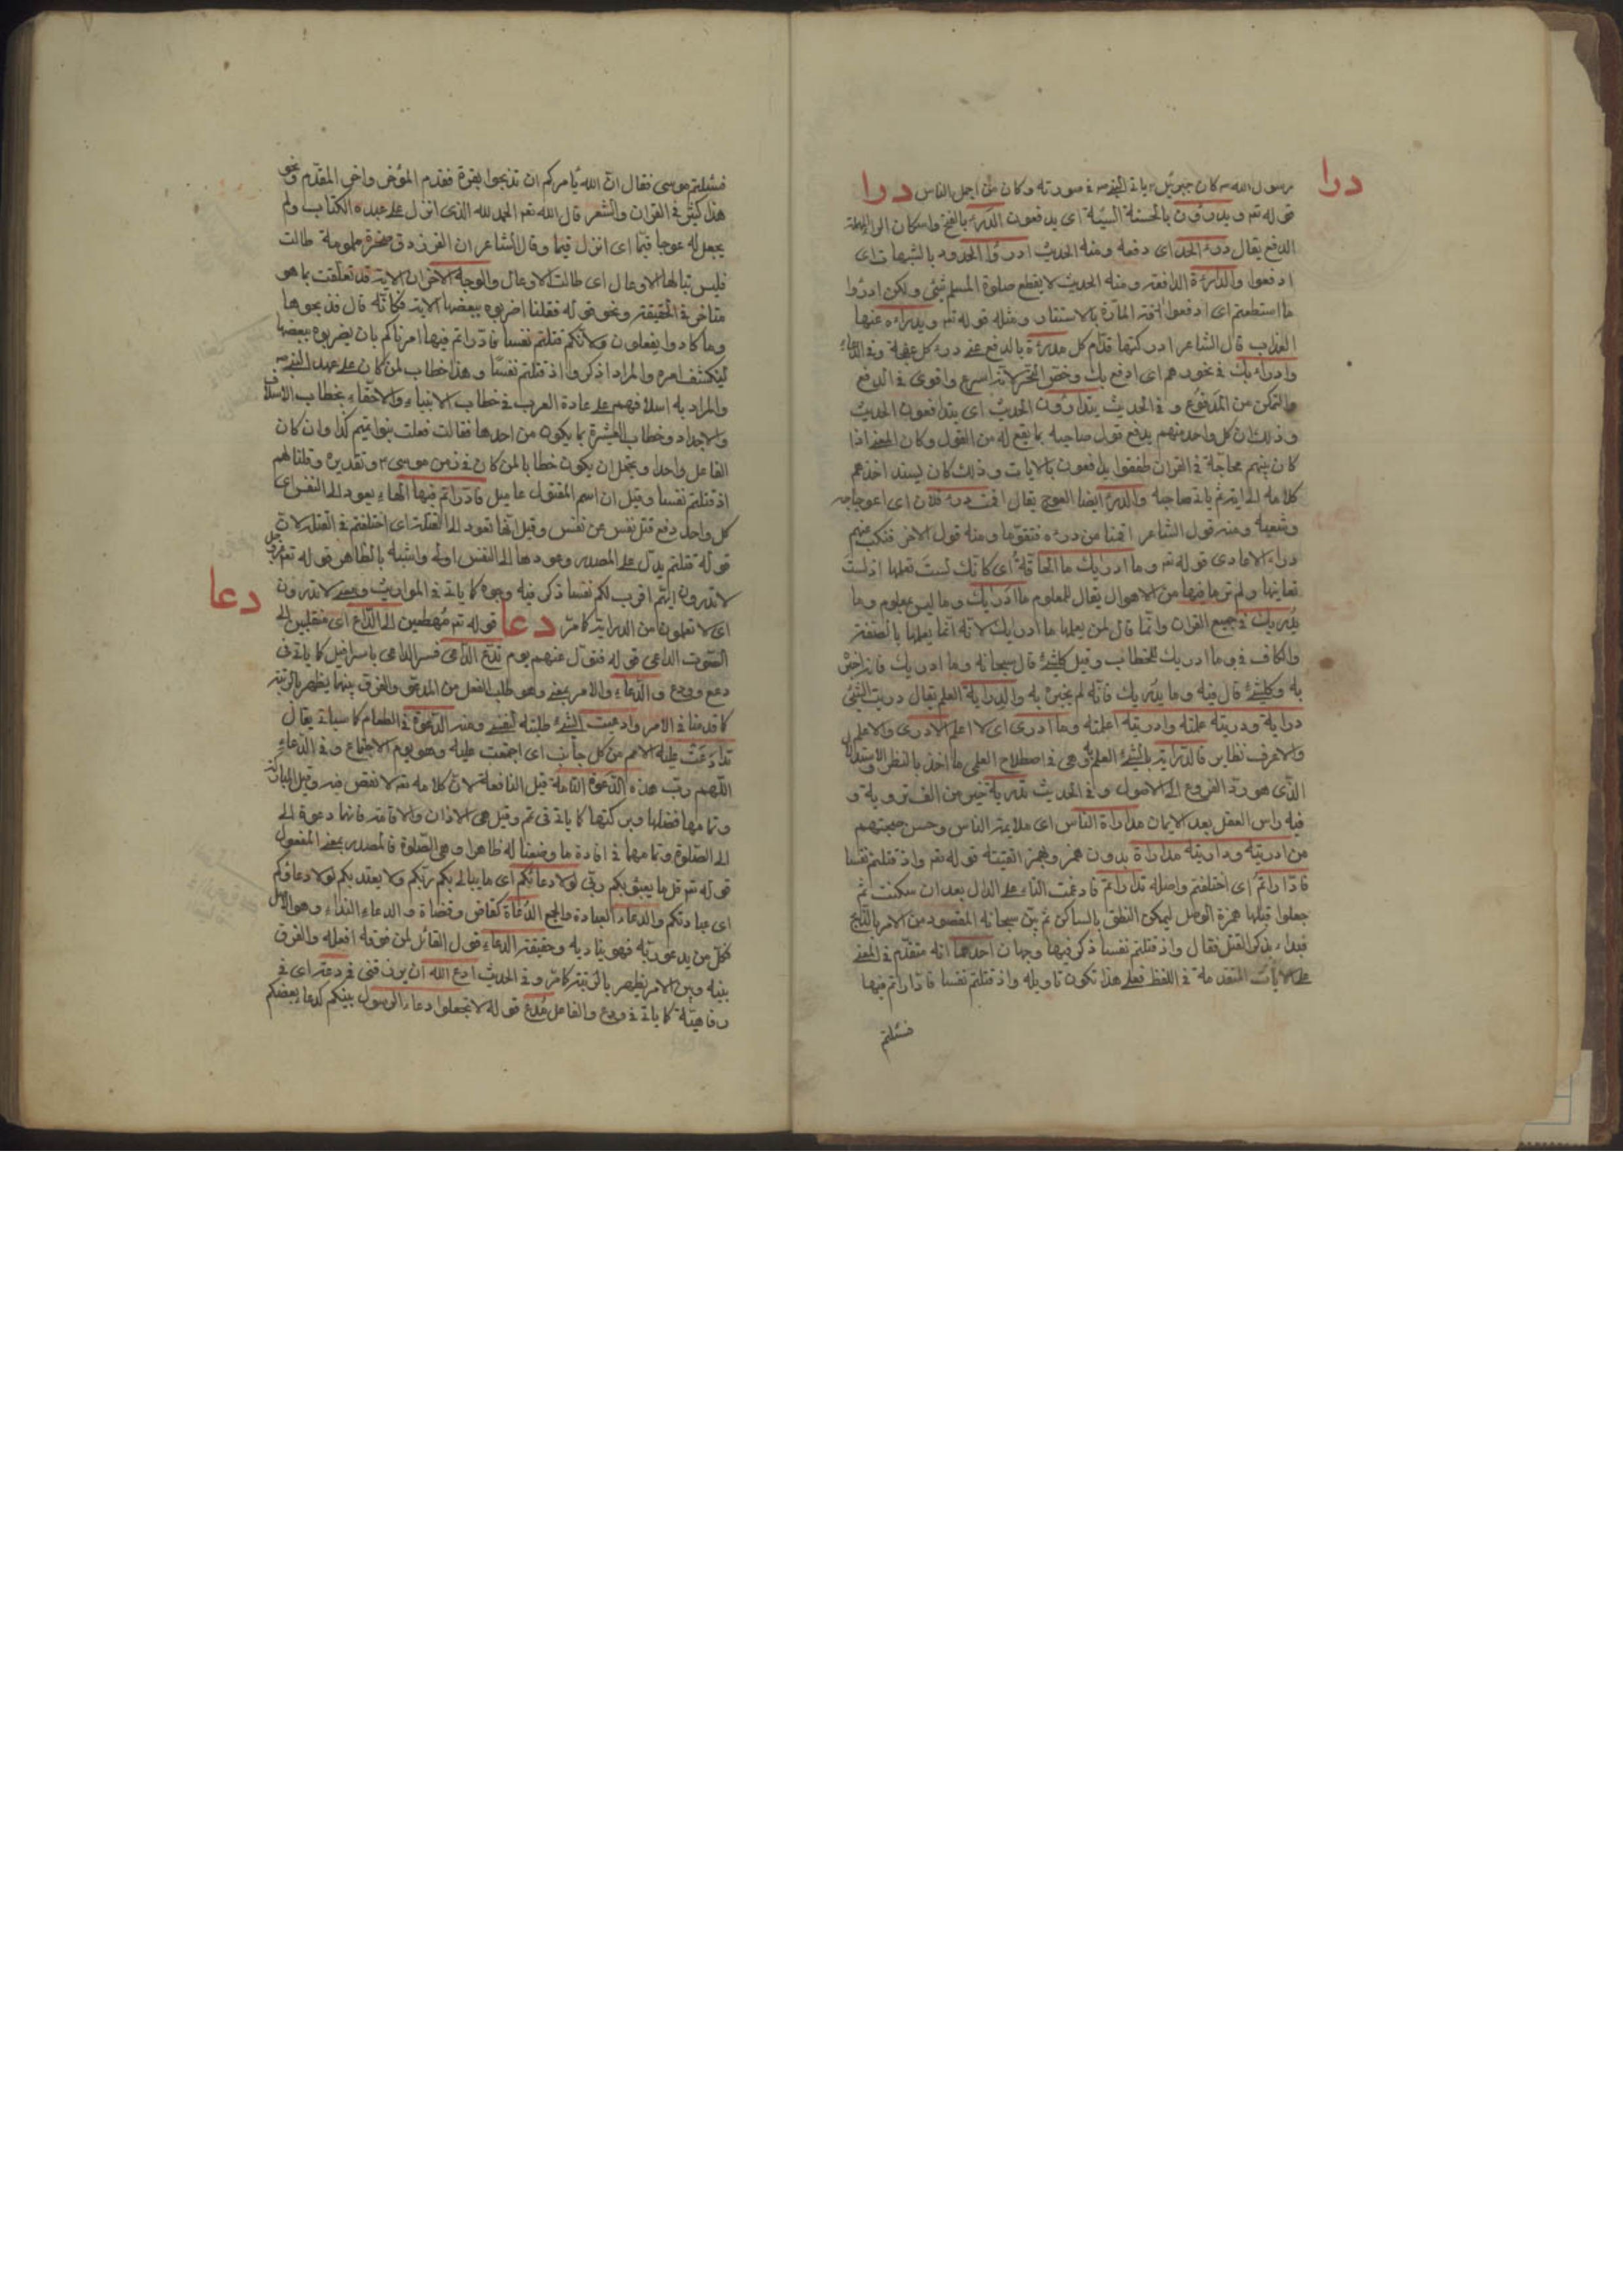 درا
رسول الله ص كان جبرئيل ع ياتى النبى ص فى صورته وكان من اجمل الناس درا
قوله تع ويدرؤن بالحسنة السيئة اى يدفعون الدرء بالفتح واسكان الراء المهملة
الدفع يقال درء الحد اى دفعه ومنه الحديث ادرؤا الحدود بالشبهات اى
ادفعوا والدارئة الدافعة ومنه الحديث لا يقطع صلوة المسلم شئ ولكن ادرؤا
ما استطعتم اى ادفعوا افة المارة بالاستتار ومثله قوله تع ويدراء عنها
العذاب قال الشاعر ادركتها قدام كل مدرة بالدفع عنى درء كل عنجهة وفى الدعاء
وادراء بك فى نحورهم اى ادفع بك وخص النحر لانه اسرع واقوى فى الدفع
والتمكن من المدفوع وفى الحديث يتدارؤون الحديث اى يتدافعون الحديث
وذلك ان كل واحد منهم يدفع قول صاحبه بما يقع له من القول وكان المعنى اذا
كان بينهم محاجة فى القران طفقوا يدافعون بالايات وذلك كان يسند احدهم
كلامه الى اية ثم ياتى صاحبه والدرء ايضا العوج يقال اقمت درء فلان اى اعوجاجه
وشعبه ومنه قول الشاعر اقمنا من درءه فتقوما ومنه قول الاخر فنكب عنهم
درء الاعادى قوله تع وما ادريك ما الحاقة اى كانك لست تعلمها اذ لست
تعاينها ولم تر ما فيها من الاهوال يقال للمعلوم ما ادريك وما ليس بمعلوم وما
يدريك فى جميع القران وانما قال لمن يعلمها ما ادريك لانه انما يعلمها بالصفة
والكاف فى وما ادريك للخطاب وقيل كلشئ قال سبحانه وما ادريك فانه اخبر
به وكلشئ قال فيه وما يدريك فانه لم يخبره به والدراية العلم يقال دريت الشئ
دراية ودريته علمته وادريته اعلمته وما ادرى اى لا اعلم الادرى والاعلم
والاعرف نظاير فالدراية بالشئ العلم به وهى فى اصطلاح العلمى ما اخذ بالنظر والاستدلال
الذى هو رد الفروع الى الاصول وفى الحديث تدريه خير من الف ترويه و
فيه راس العقل بعد الايمان مداراة الناس اى ملايمة الناس وحسن صحبتهم
من ادريته وداريته مداراة بدون همز وبهمز اتقيته قوله تع واذ قتلتم نفسا
فادارءتم اى اختلفتم واصله تدارءتم فادغمت التاء على الدال بعد ان سكنت ثم
جعلوا قبلها همزة الوصل ليمكن النطق بالساكن ثم بين سبحانه المقصود من الامر بالذبح
فبداء بذكر القتل فقال واذ قتلتم نفسا ذكر فيها وجهان احدهما انه متقدم فى المعنى
على الايات المتقدمة فى اللفظ فعلى هذا تكون تاويله واذ قتلتم نفسا فادارءتم فيها
فسئلتم
فسئلتم موسى فقال ان الله يامركم ان تذبحوا بقرة فقدم المؤخر واخر المقدم ونحو
هذا كثير فى القران والشعر قال الله تع الحمد لله الذى انزل على عبده الكتاب ولم
يجعل له عوجا قيما اى انزل قيما وقال الشاعر ان الفرزدق صخرة ملمومة طالت
فليس تنالها الاوعال اى طالت الاوعال والوجه الاخر ان الاية قد تعلقت بما هو
متاخر فى الحقيقة ونحو قوله فقلنا اضربوه ببعضها الاية فكانه قال فذبحوها
وما كادوا يفعلون ولانكم قتلتم نفسا فادارءتم فيها امرناكم بان يضربوه ببعضها
لينكشف امره والمراد اذكروا اذ قتلتم نفسا وهذا خطاب لمن كان على عهد النبى ص
والمراد به اسلافهم على عادة العرب فى خطاب الابناء والاحفاء بخطاب الاسلاف
والاجداد وخطاب العشيرة بما يكون من احدها فقالت فعلت بنو تميم كذا وان كان
الفاعل واحدا ويحتمل ان يكون خطابا لمن كان فى زمن موسى ع وتقديره وقلنا لهم
اذ قتلتم نفسا وقيل ان اسم المقتول عاميل فادارءتم فيها الهاء يعود الى النفس اى
كل واحد دفع قتل نفس عن نفس وقيل انها تعود الى القتلة اى اختلفتم فى القتلة لان
قوله قتلتم يدل على المصدر وعودها الى النفس اولى واشبه بالظاهر قوله تع عز وجل
لا تدرون ايهم اقرب لكم نفعا ذكر فيه وجوه كما ياتى فى المواريث ومعنى لا تدرون
دعا
اى لا تعلمون من الدراية كما مر دعا قوله تع مهطعين الى الداع اى مقبلين الى
الصوت الداعى قوله فتول عنهم يوم تدع الداعى فسر الداعى باسرافيل كما ياتى فى
دمع وودع والدعاء والامر بمعنى وهو طلب الفعل من المدعو والفرق بينهما يظهر بالرتبة
كما قدمنا فى الامر وادعيت الشئ طلبته لنفسى ومنه الدعوة فى الطعام كما سياتى يقال
تداعت عليه الامم من كل جانب اى اجمعت عليه وهو يوم الاجتماع وفى الدعاء
اللهم رب هذه الدعوة التامة قيل النافعة لان كلامه تع لا نقص فيه وقيل المباركة
وتمامها فضلها وبركتها كما ياتى فى تم وقيل هى الاذان والاقامة فانها دعوة الى
الى الصلوة وتمامها فى افادة ما وضعنا له ظاهرا وهى الصلوة فالمصدر بمعنى المفعول
قوله تع قل ما يعبؤ بكم ربى لولا دعائكم اى ما يبالى بكم ربكم ولا يعتد بكم لولا دعاؤكم
اى عبادتكم والدعاء العبادة والجمع الدعاة كقاض وقضاة والدعاء النداء وهو الاصل
فكل من يدعو ربه فهو يناديه وحقيقة الدعاء قول القائل لمن فوقه افعله والفرق
بينه وبين الامر يظهر بالرتبة كما مر وفى الحديث ادع الله ان يرزقنى فى دعة اى فى
رفاهية كما ياتى فى ودع والفاعل مدع قوله لا تجعلوا دعاء الرسول بينكم كدعاء بعضكم